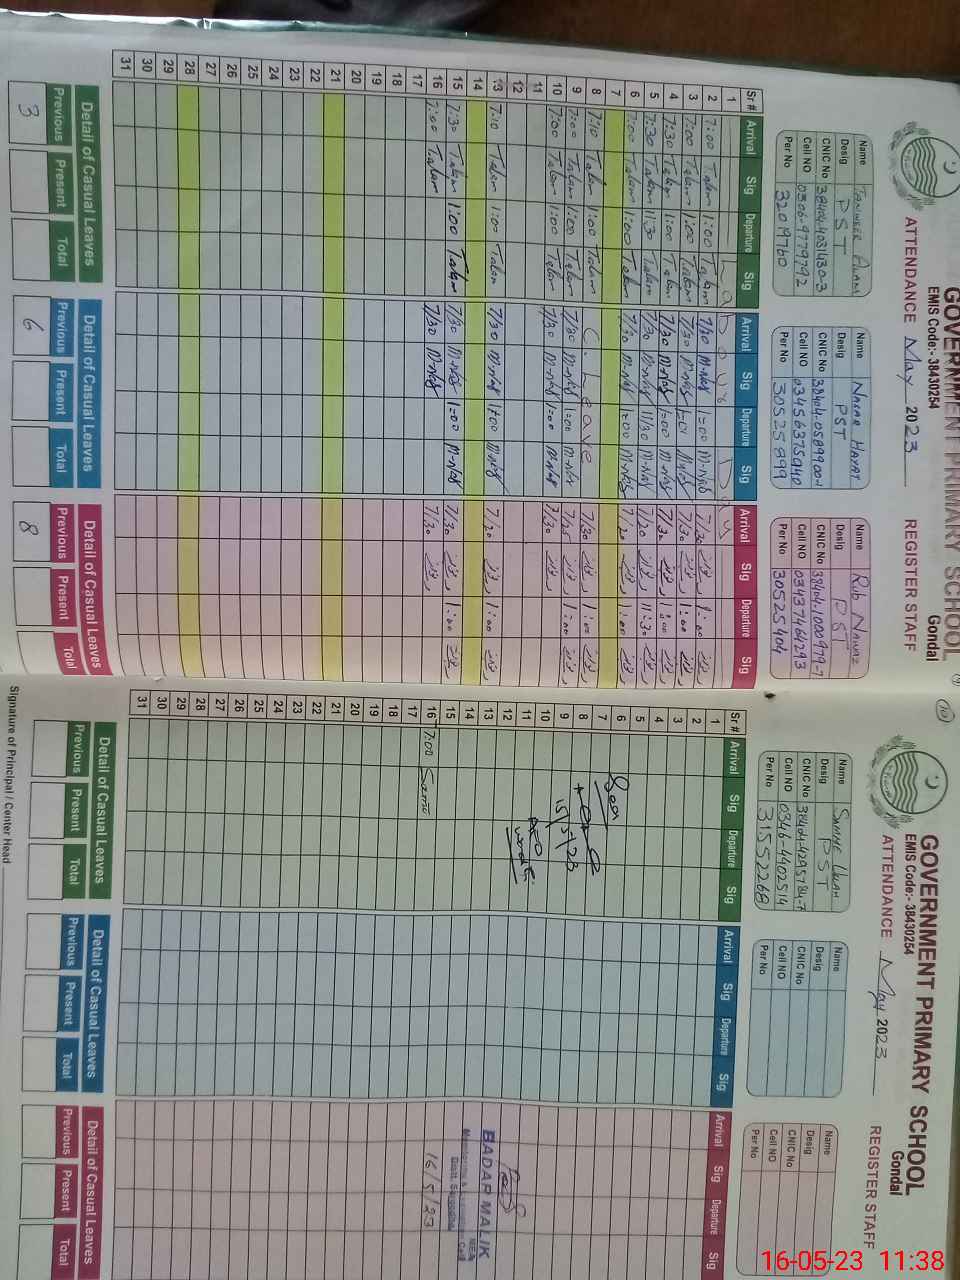 GOVERNMENT PRIMARY SCHOOL
Gondal
EMIS Code:- 38430254
ATTENDANCE May 2023
REGISTER STAFF
Name
Desig PST
CNIC No 38404-4031430-3
Cell NO 0306-9779792
Per No 32019760
Name Nazar Hayat
Desig PST
CNIC No
Cell NO 03456375940
Per No 30525999
Name Rub Nawaz
Desig PST
CNIC No 38404-1000979-7
Cell NO 03437464293
Per No 30525404
Sr # Arrival Sig Departure Sig Arrival Sig Departure Sig Arrival Sig Departure Sig
1 Labour Day
2 7:00 Talam 1:00 Talam 7/30 1=00 7/30 1:00
3 7:00 Talam 1:00 Talam 7/30 7/30 1:00
4 7:30 Talam 1:00 Talam 7/30 1=00 7/30 1:00
5 7:30 Talam 11:30 Talam 7/30 11/30 7/20 11:30
6 7:00 Talam 1:00 Talam 7/30 1=00 7/20 1:00
7
8 7:10 Talam 1:00 Talam C. Leave 7/30 1:00
9 7:00 Talam 1:00 Talam 7/30 1=00 7/25 1:00
10 7:00 Talam 1:00 Talam 7/30 1=00 7/30
11
12
13 7:10 Talam 1:00 Talam 7/30 1=00 7/20 1:00
14
15 7:30 Talam 1:00 Talam 7/30 1=00 7/30 1:00
16 7:00 Talam 7/30 7/30
17
18
19
20
21
22
23
24
25
26
27
28
29
30
31
Detail of Casual Leaves
Previous Present Total
3
Detail of Casual Leaves
Previous Present Total
6
Detail of Casual Leaves
Previous Present Total
8
10
GOVERNMENT PRIMARY SCHOOL
Gondal
EMIS Code:- 38430254
ATTENDANCE May 2023
REGISTER STAFF
Name
Desig PST
CNIC No
Cell NO 0346-4402514
Per No 31552268
Name
Desig
CNIC No
Cell NO
Per No
Name
Desig
CNIC No
Cell NO
Per No
Sr # Arrival Sig Departure Sig Arrival Sig Departure Sig Arrival Sig Departure Sig
1
2
3
4
5
6
7
8
9
10
11
12
13
14
15
16 7:00 Sami
17
18
19
20
21
22
23
24
25
26
27
28
29
30
31
Seen
15/5/23
AEO
BADAR MALIK
MEA
Monitoring & Evaluation Cell
Distt. Sargodha
16/5/23
Detail of Casual Leaves
Previous Present Total
Detail of Casual Leaves
Previous Present Total
Detail of Casual Leaves
Previous Present Total
Signature of Principal / Center Head
16-05-23 11:38